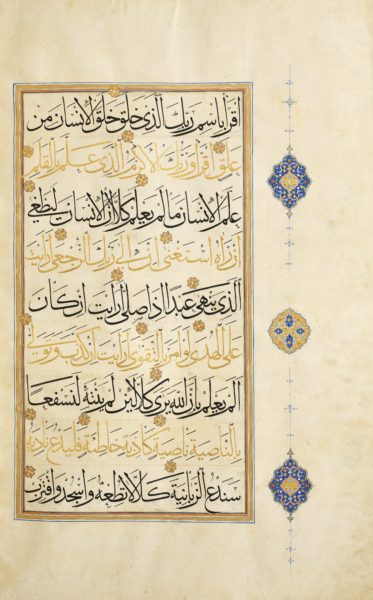 اقرأ باسم ربك الذي خلق خلق الإنسان من
علق اقرأ وربك الأكرم الذي علم بالقلم
علم الإنسان ما لم يعلم كلا إن الإنسان ليطغى
أن رآه استغنى إن إلى ربك الرجعى أرأيت
الذي ينهى عبدا إذا صلى أرأيت إن كان
على الهدى أو أمر بالتقوى أرأيت إن كذب وتولى
ألم يعلم بأن الله يرى كلا لئن لم ينته لنسفعا
بالناصية ناصية كاذبة خاطئة فليدع ناديه
سندع الزبانية كلا لا تطعه واسجد واقترب